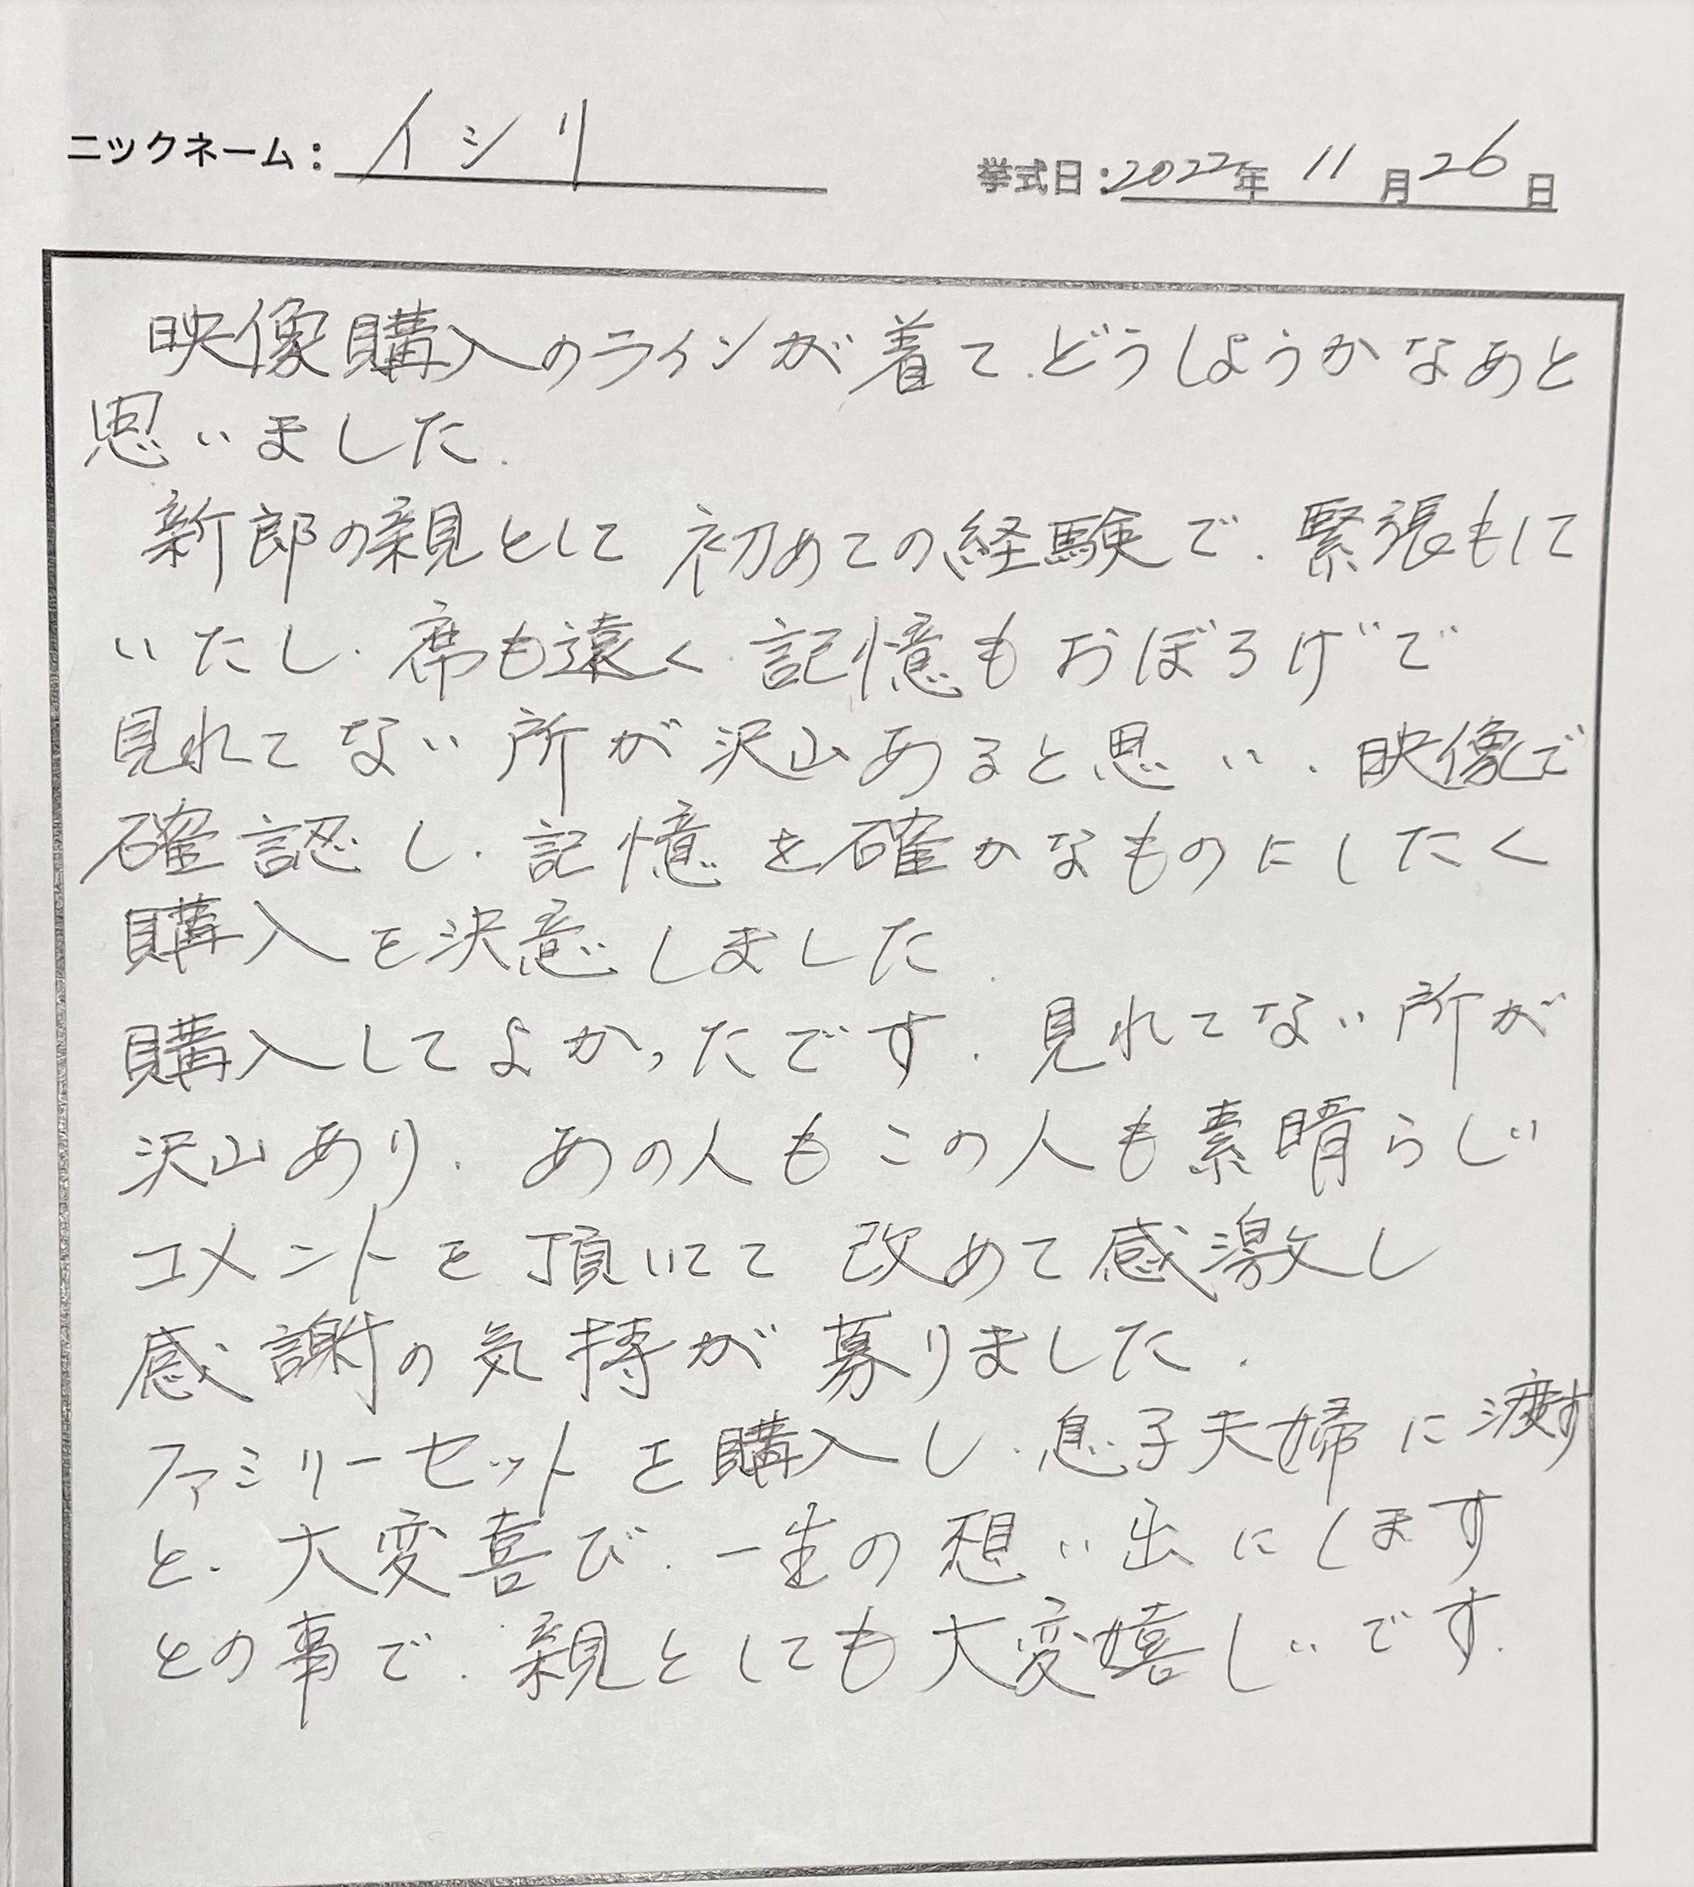 ニックネーム：イシリ
挙式日：2022年 11月26日
映像購入のラインが着て、どうしようかなあと
思いました。
新郎の親として初めての経験で、緊張もして
いたし、席も遠く、記憶もおぼろげで
見れてない所が沢山あると思い、映像で
確認し、記憶を確かなものにしたく
購入を決意しました。
購入してよかったです。見れてない所が
沢山あり、あの人もこの人も素晴らしい
コメントを頂いてて改めて感激し
感謝の気持が募りました。
ファミリーセットを購入し、息子夫婦に渡す
と、大変喜び、一生の想い出にします
との事で、親としても大変嬉しいです。